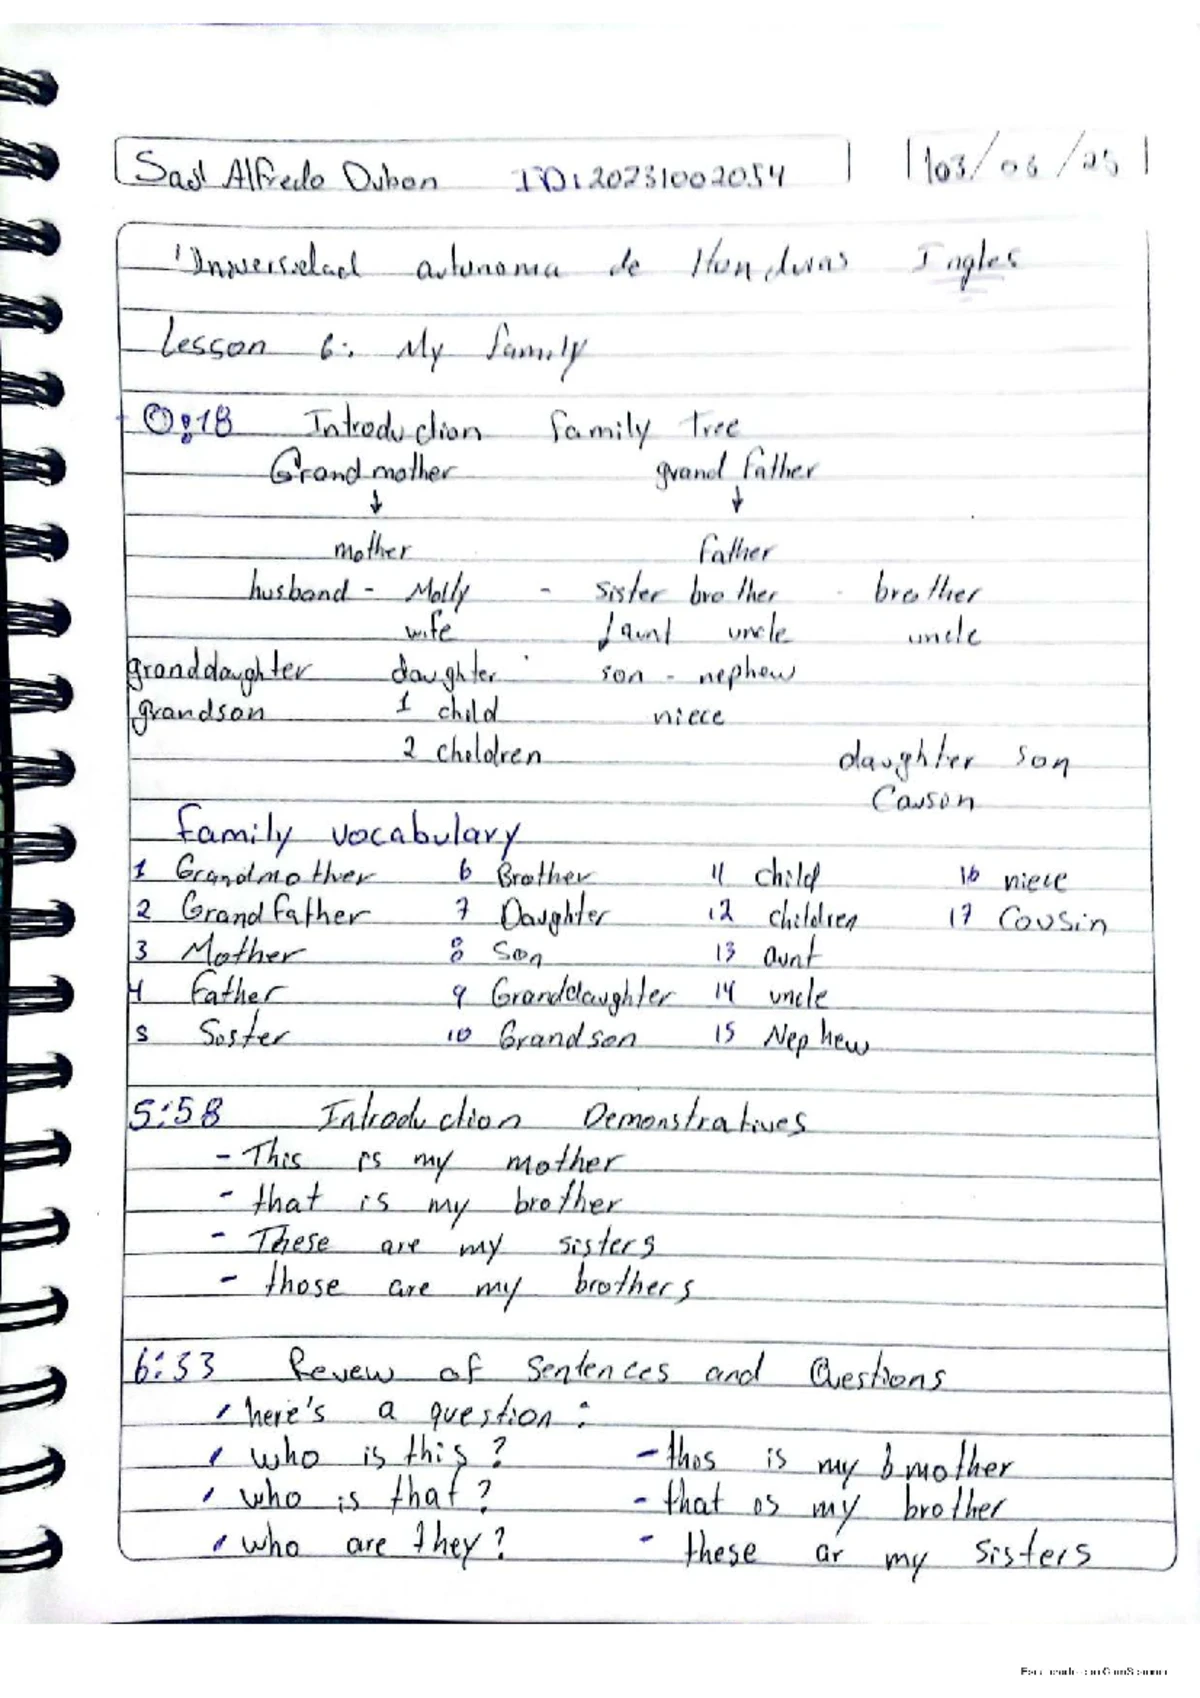 Saul Alfredo Dubon ID: 20231002054 03/06/25
Universidad autonoma de Honduras Ingles
Lesson 6: My family
0:18 Introduction family Tree
Grandmother grand father
↓ ↓
mother father
husband - Molly - sister brother - brother
wife aunt uncle uncle
granddaughter daughter son - nephew
grandson 1 child niece
2 children
daughter son
Causin
family vocabulary
1 Grandmother 6 Brother 11 child 16 niece
2 Grandfather 7 Daughter 12 children 17 Cousin
3 Mother 8 Son 13 aunt
4 Father 9 Granddaughter 14 uncle
5 Sister 10 Grandson 15 Nephew
5:58 Introduction Demonstratives
- This is my mother
- that is my brother
- These are my sisters
- those are my brothers
6:33 Revew of sentences and Questions
here's a question:
who is this? - this is my mother
who is that? - that is my brother
who are they? - these ar my sisters